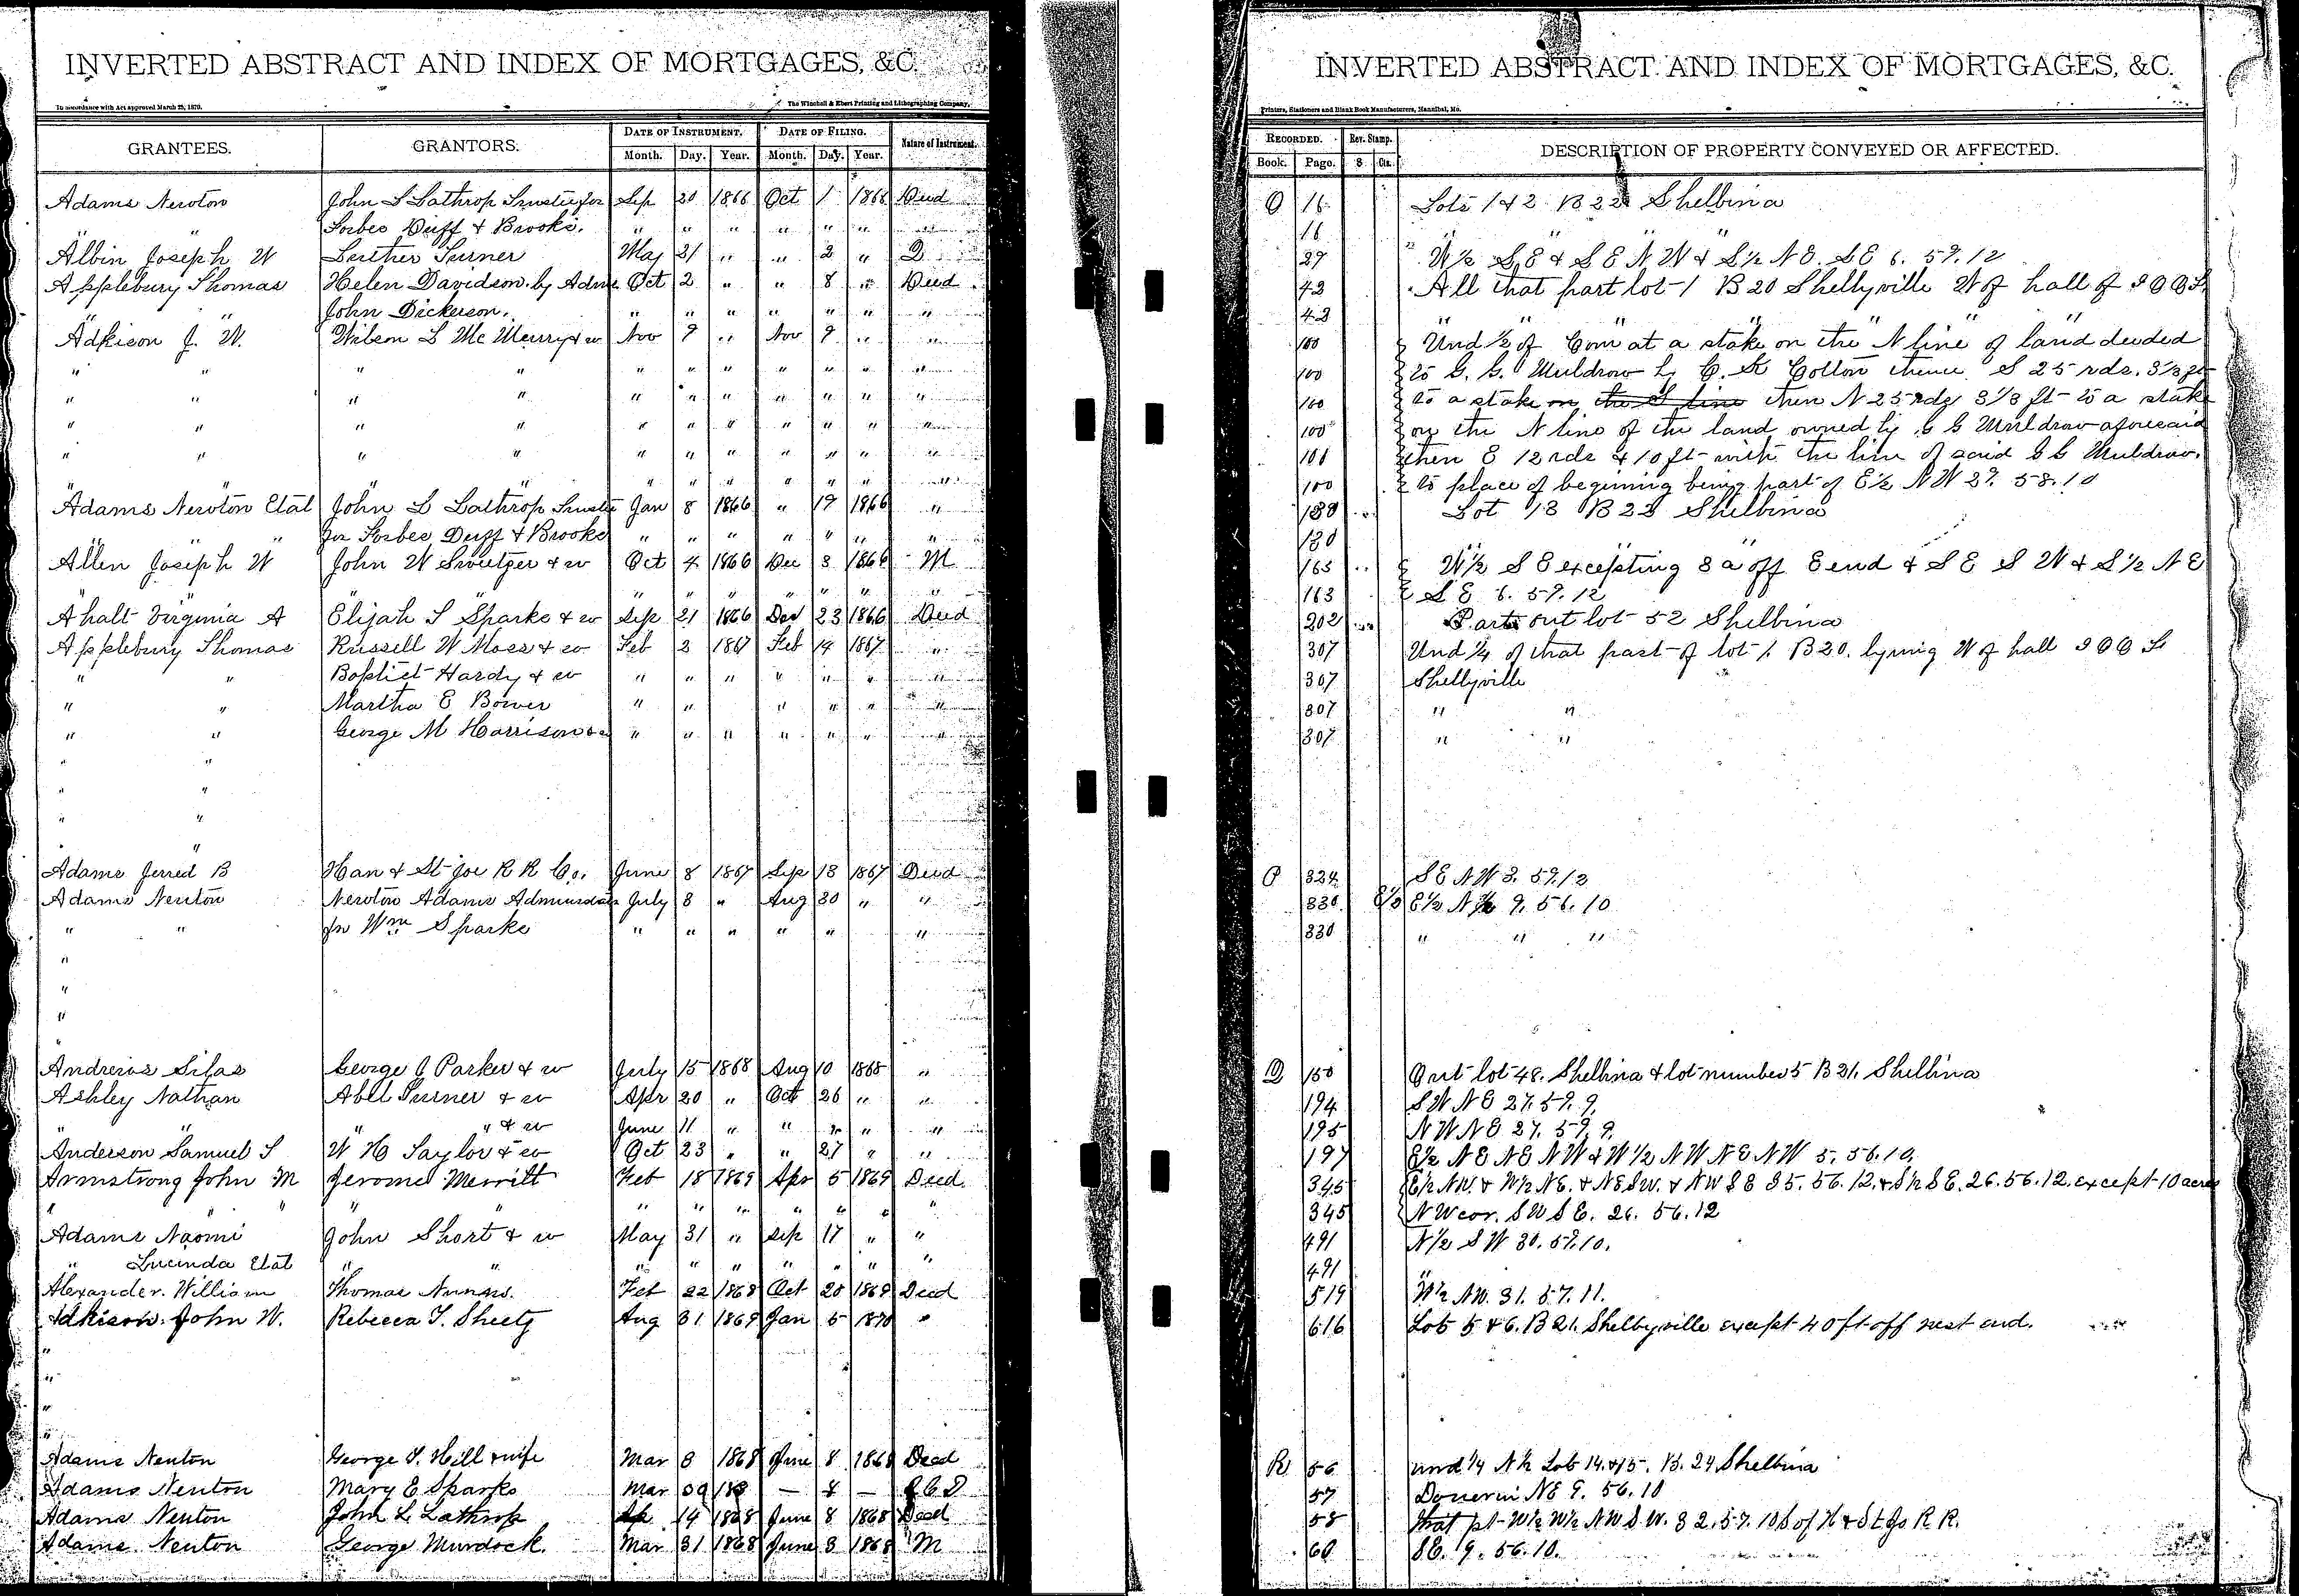 INVERTED ABSTRACT AND INDEX OF MORTGAGES, &C.
In accordance with Act approved March 25, 1879.
The Winchell & Ebert Printing and Lithographing Company,
GRANTEES. GRANTORS. DATE OF INSTRUMENT. DATE OF FILING. Nature of Instrument.
Month. Day. Year. Month. Day. Year.
Adams Newton John L Lathrop Trustee for Sep 20 1866 Oct 1 1866 Deed
" " Forbes Duff & Brooks. " " " " " " "
Albin Joseph W Luther Turner May 21 " " 2 " D
Applebury Thomas Helen Davidson by Adm Oct 2 " " 8 " Deed
" " John Dickerson. " " " " " " "
Adkison J. W. Wilson L McMurry & w Nov 9 " Nov 9 " "
" " " " " " " " " " "
" " " " " " " " " " "
" " " " " " " " " " "
" " " " " " " " " " "
" " " " " " " " " " "
Adams Newton Etal John L Lathrop Trustee Jan 8 1866 " 19 1866 "
" " for Forbes Duff & Brooks " " " " " " "
Allen Joseph W John W Sweitzer & w Oct 4 1866 Dec 3 1866 M
" " " " " " " " " " "
Ahalt Virginia A Elijah T Sparks & w Sep 21 1866 Dec 23 1866 Deed
Applebury Thomas Russell W Moss & w Feb 2 1867 Feb 14 1867 "
" " Baptist Hardy & w " " " " " " "
" " Martha E Bower " " " " " "
" " George M Harrison & w " " " " " " "
" "
" "
" "
" "
Adams Jerred B Han & St Joe R R Co. June 8 1867 Sep 18 1867 Deed
Adams Newton Newton Adams Administrator July 8 " Aug 30 " "
" " for Wm Sparks " " " " " "
"
"
"
"
Andrews Silas George J Parker & w July 15 1868 Aug 10 1868 "
Ashley Nathan Abel Turner & w Apr 20 " Oct 26 " "
" " " " & w June 11 " " " " "
Anderson Samuel S W H Taylor & w Oct 23 " " 27 " "
Armstrong John M Jerome Merritt Feb 18 1869 Apr 5 1869 Deed.
" " " " " " " " " " "
Adams Naomi John Short & w May 31 " Sep 17 " "
" Lucinda Etal " " " " " " " " "
Alexander. William Thomas Nunas. Feb 22 1868 Oct 20 1869 Deed
Adkison. John W. Rebecca T. Sheetz Aug 31 1869 Jan 5 1870 "
"
"
"
"
Adams Newton George T. Hill & wife Mar 3 1868 June 8 1868 Deed
Adams Newton Mary E Sparks Mar — 8 —
Adams Newton John L Lathrop 14 1868 June 8 1868 Deed
Adams Newton George Murdock. Mar 31 1868 June 8 1868 M
INVERTED ABSTRACT AND INDEX OF MORTGAGES, &C.
Printers, Stationers and Blank Book Manufacturers, Hannibal, Mo.
RECORDED. Rev. Stamp. DESCRIPTION OF PROPERTY CONVEYED OR AFFECTED.
Book. Page. $ Cts.
O 16 Lots 1 & 2 B 22 Shelbina
16 " " " "
29 W½ S E & S E N W & S½ N E. S E 6. 57. 12
42 All that part lot 1 B 20 Shelbyville W of hall of I O O F
42 " " " " " "
100 Und ½ of Com at a stake on the N line of land deeded
100 to G. G. Muldrow by C. K Cotton thence S 25 rds. 3⅓ ft
100 to a stake on the S line then N 25 rds 3⅓ ft to a stake
100 on the N line of the land owned by G G Muldrow aforesaid
100 then E 12 rds & 10 ft with the line of said G G Muldrow,
100 to place of beginning being part of E½ N W 27. 58. 10
130 Lot 13 B 23 Shelbina
130 " " "
163 W½ S E excepting 8 a off E end & S E S W & S½ N E
163 S E 6. 57. 12
202 Part out lot 52 Shelbina
307 Und ¼ of that part of lot 1. B 20. lying W of hall I O O F
307 Shelbyville
307 " "
307 " "
P 324 S E N W 3. 57. 12
330 E½ 9. 56. 10
330 " " "
Q 150 Out lot 48. Shelbina & lot number 5 B 21. Shelbina
194 S W N E 27. 57. 9.
195 N W N E 27. 57. 9.
197 E½ N E N E N W & W½ N W N E N W 5. 56. 10.
345 E½ NW. & W½ NE. & NE SW. & NW SE 35. 56. 12. & S½ SE. 26. 56. 12. except 10 acres
345 NW cor. SW SE. 26. 56. 12
491 N½ SW 30. 57. 10.
491 "
519 W½ NW. 31. 57. 11.
616 Lots 5 & 6. B 21. Shelbyville except 40 ft off west end.
R 56 und ¼ N½ Lots 14. & 15. B. 24 Shelbina
57 Dower in NE 9. 56. 10
58 that pt W½ W½ NW SW. 32. 57. 10 S of H & St Jo R R.
60 SE. 9. 56. 10.